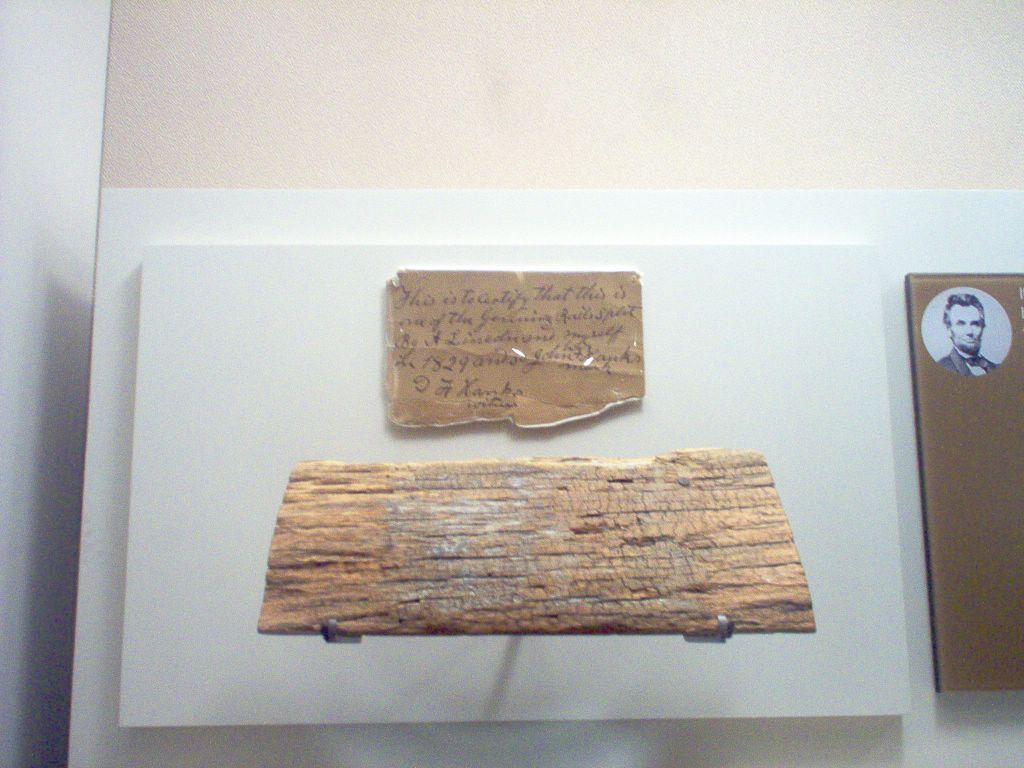 This is to certify that this is
one of the genuine Rails split
By A Lincoln and myself
in 1829 and 30 John Hanks
his
mark
D F Hanks
witness